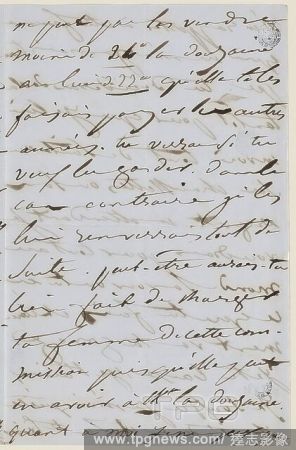 ne peut pas les vendre
moins de 24f la douzaine
au lieu de 22f qu'elle te les
faisait payer les autres
années. tu verras si tu
veux les garder. dans le
cas contraire je les
lui renverrais tout de
suite. peut-être aurais-tu
bien fait de charger
ta femme de cette com-
mission puisqu'elle peut
en avoir à la douzaine.
quant à moi
www.tpgnews.com/達志影像